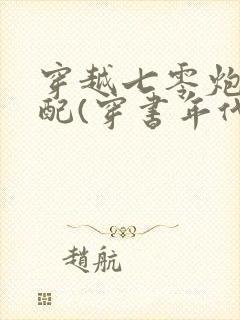 穿越七零炮
配(穿書年代
趙航